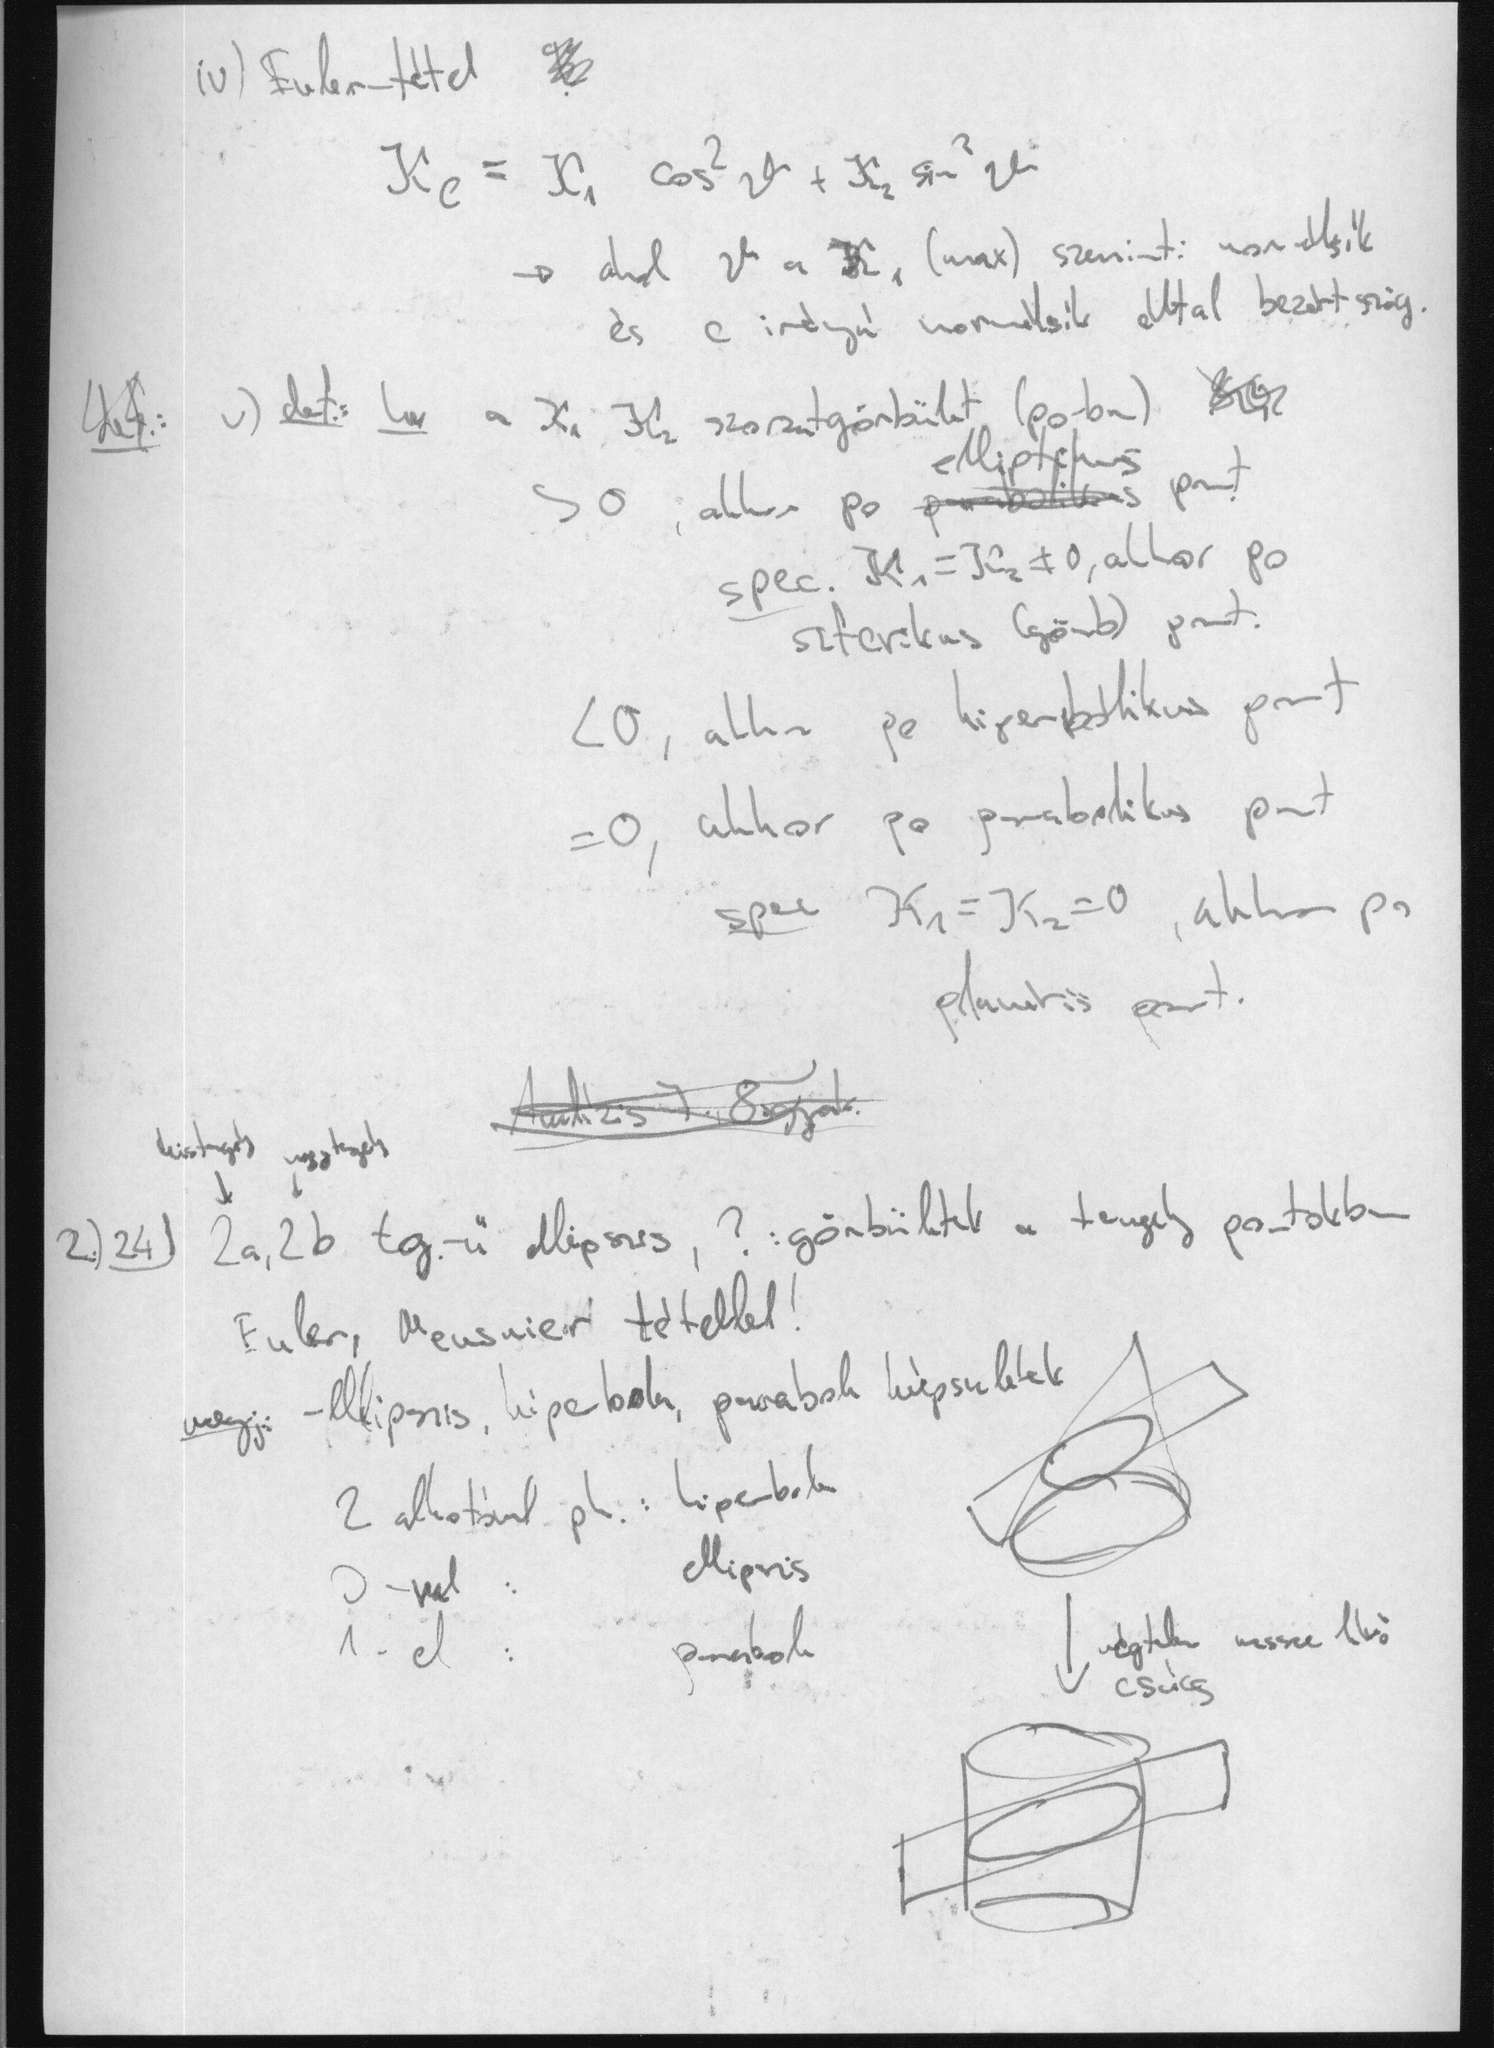 iv) Euler-tétel
K_e = K_1 cos² ϑ + K_2 sin² ϑ
→ ahol ϑ a K_1 (max) szerinti normálsík
és e irányú normálsík által bezárt szög.
def.: v) def.: ha a K_1 K_2 szorzatgörbület (p0-ban)
elliptikus
> 0, akkor p0 parabolikus pont
spec. K_1 = K_2 ≠ 0, akkor p0
szférikus (gömb) pont.
< 0, akkor p0 hiperbolikus pont
= 0, akkor p0 parabolikus pont
spec K_1 = K_2 = 0, akkor p0
planáris pont.
Analízis 7., 8. gyak.
kistengely nagytengely
↓ ↓
2.) 24) 2a, 2b tg.-ű ellipszis, ?: görbületek a tengelypontokban
Euler, Meusnier tétellel!
megj: - ellipszis, hiperbola, parabola kúpszeletek
2 alkotóval ph.: hiperbola
0-val : ellipszis
1-el : parabola
↓ végtelen messze lévő
csúcs